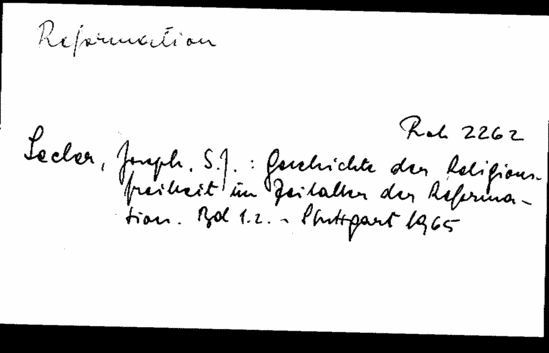 Reformation
Rah 2262
Lecler, Joseph, S.J. : Geschichte der Religions-
freiheit im Zeitalter der Reforma-
tion. Bd 1.2. - Stuttgart 1965